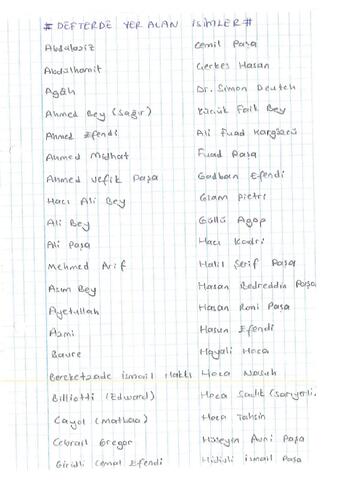 # DEFTERDE YER ALAN İSİMLER #
Abdülaziz
Abdülhamit
Agâh
Ahmed Bey (Sağır)
Ahmed Efendi
Ahmed Midhat
Ahmed Vefik Paşa
Hacı Ali Bey
Ali Bey
Ali Paşa
Mehmed Arif
Asım Bey
Ayetullah
Azmi
Baure
Bereketzade İsmail Hakkı
Billiotti (Edward)
Cayol (Matbaa)
Cebrail Gregor
Giridli Cemal Efendi
Cemil Paşa
Çerkes Hasan
Dr. Simon Deutch
Küçük Faik Bey
Ali Fuad
Fuad Paşa
Gadban Efendi
Giam Pietri
Güllü Agop
Hacı Kadri
Halil Şerif Paşa
Hasan Bedreddin Paşa
Hasan Rami Paşa
Hasun Efendi
Hayali Hoca
Hoca Nasuh
Hoca Sadık (Sarıyerli.
Hoca Tahsin
Hüseyin Avni Paşa
İsmail Paşa